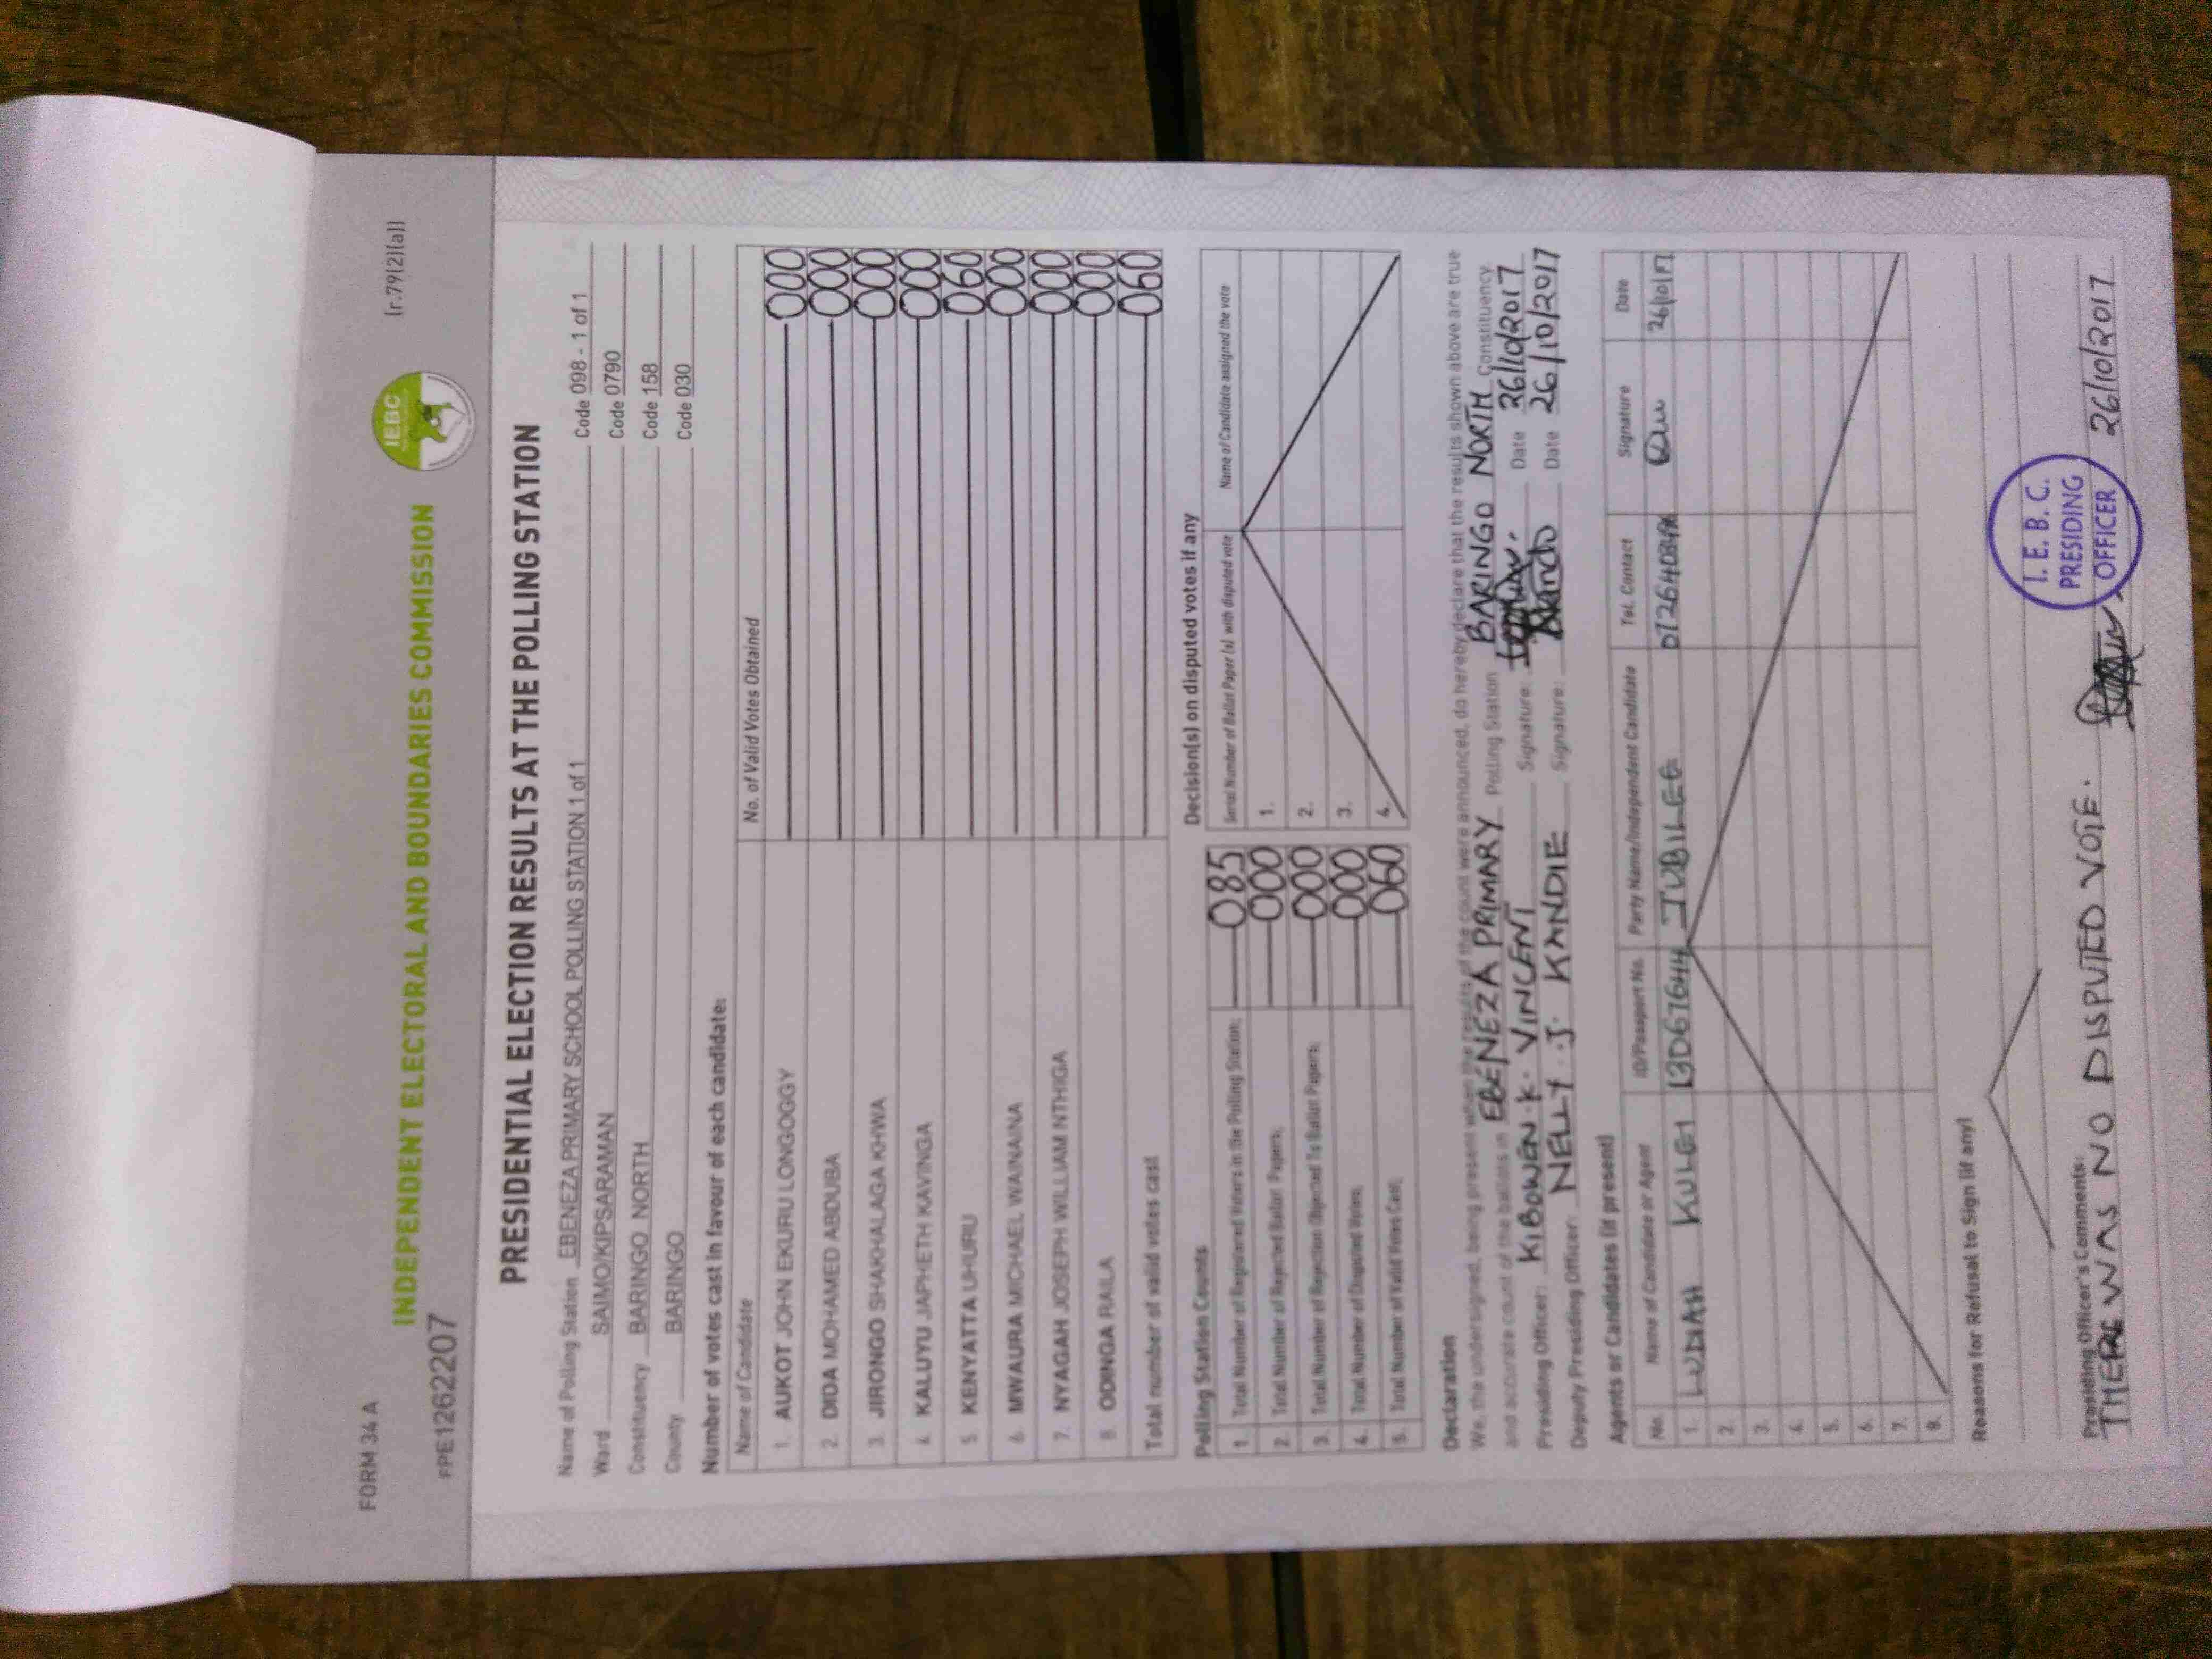 FORM 34 A
(r.79(2)(a))
IEBC
INDEPENDENT ELECTORAL AND BOUNDARIES COMMISSION
PPE1262207
PRESIDENTIAL ELECTION RESULTS AT THE POLLING STATION
Name of Polling Station EBENEZA PRIMARY SCHOOL POLLING STATION 1 of 1 Code 098 - 1 of 1
Ward SAIMO/KIPSARAMAN Code 0790
Constituency BARINGO NORTH Code 158
County BARINGO Code 030
Number of votes cast in favour of each candidate:
Name of Candidate No. of Valid Votes Obtained
1. AUKOT JOHN EKURU LONGOGGY 000
2. DIDA MOHAMED ABDUBA 000
3. JIRONGO SHAKHALAGA KHWA 000
4. KALUYU JAPHETH KAVINGA 000
5. KENYATTA UHURU 060
6. MWAURA MICHAEL WAINAINA 000
7. NYAGAH JOSEPH WILLIAM NTHIGA 000
8. ODINGA RAILA 000
Total number of valid votes cast 060
Polling Station Counts
1. Total Number of Registered Voters in the Polling Station; 085
2. Total Number of Rejected Ballot Papers; 000
3. Total Number of Rejection Objected To Ballot Papers; 000
4. Total Number of Disputed Votes; 000
5. Total Number of Valid Votes Cast; 060
Decision(s) on disputed votes if any
Serial Number of Ballot Paper (s) with disputed vote Name of Candidate assigned the vote
1.
2.
3.
4.
Declaration
We, the undersigned, being present when the results of the count were announced, do hereby declare that the results shown above are true
and accurate count of the ballots in EBENEZA PRIMARY Polling Station BARINGO NORTH Constituency.
Presiding Officer: KIBOWEN·K· VINCENT Signature: Date 26/10/2017
Deputy Presiding Officer: NELLY .J. KANDIE Signature: Date 26/10/2017
Agents or Candidates (if present)
No. Name of Candidate or Agent ID/Passport No. Party Name/Independent Candidate Tel. Contact Signature Date
1. KULEI JUBILEE 26/10/17
2.
3.
4.
5.
6.
7.
8.
Reasons for Refusal to Sign (if any)
Presiding Officer's Comments:
THERE WAS NO DISPUTED VOTE. 26/10/2017
I. E. B. C.
PRESIDING
OFFICER